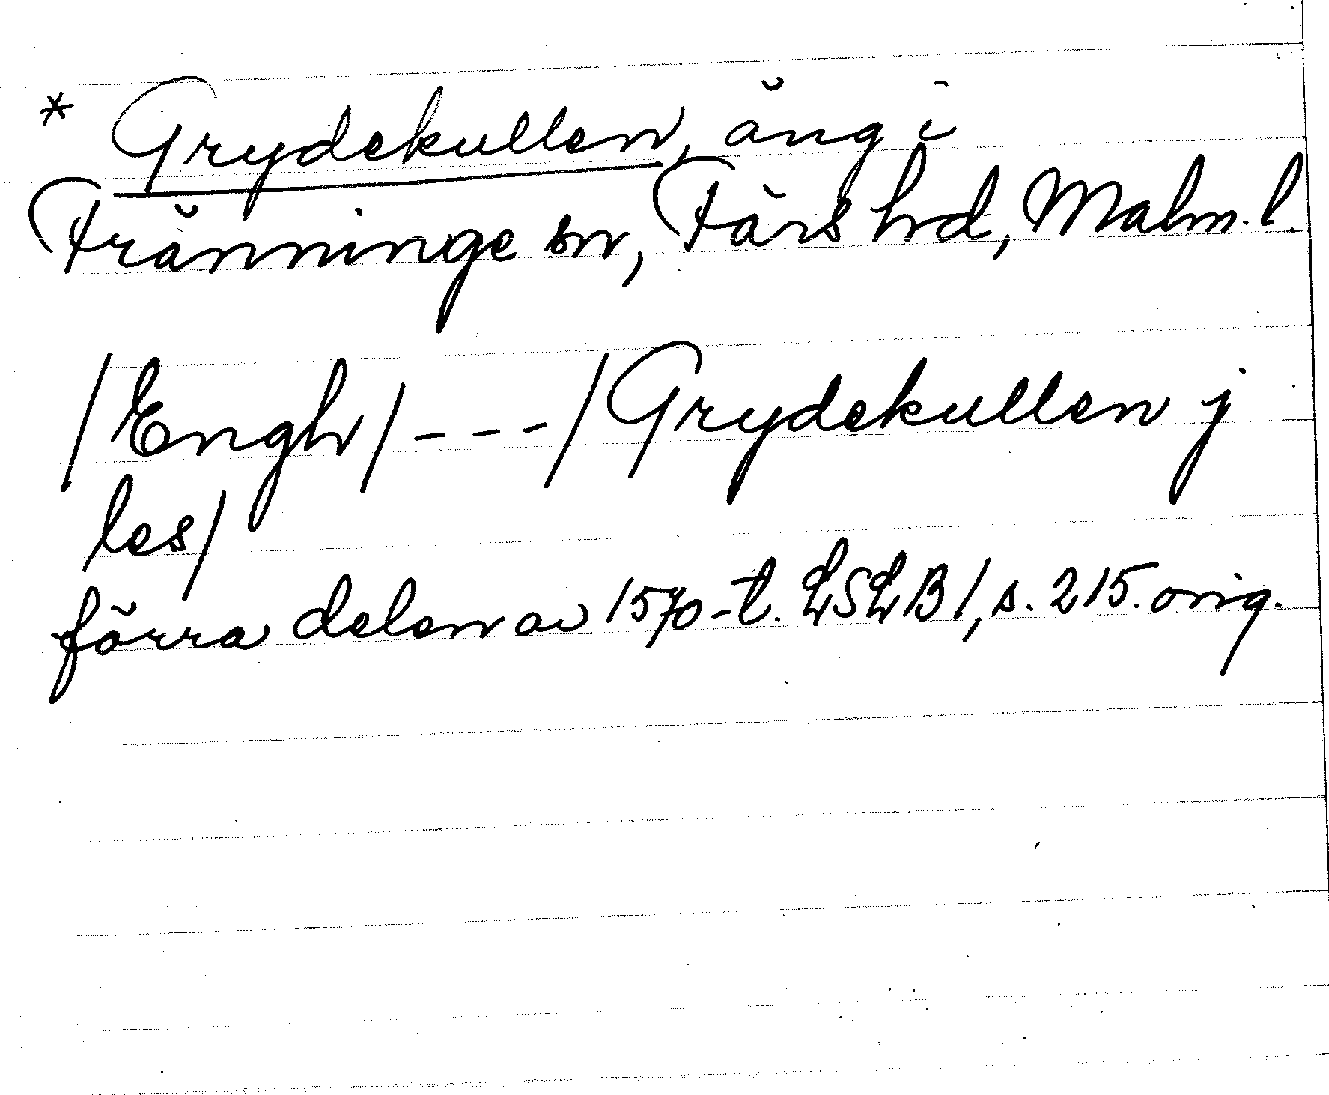 * Grydekullen, äng i
Fränninge sn, Färs hd, Malm. l.
/Engh/ - - - /Grydekullen j
les/
förra delen av 1570-t. LSLB 1, s. 215. orig.